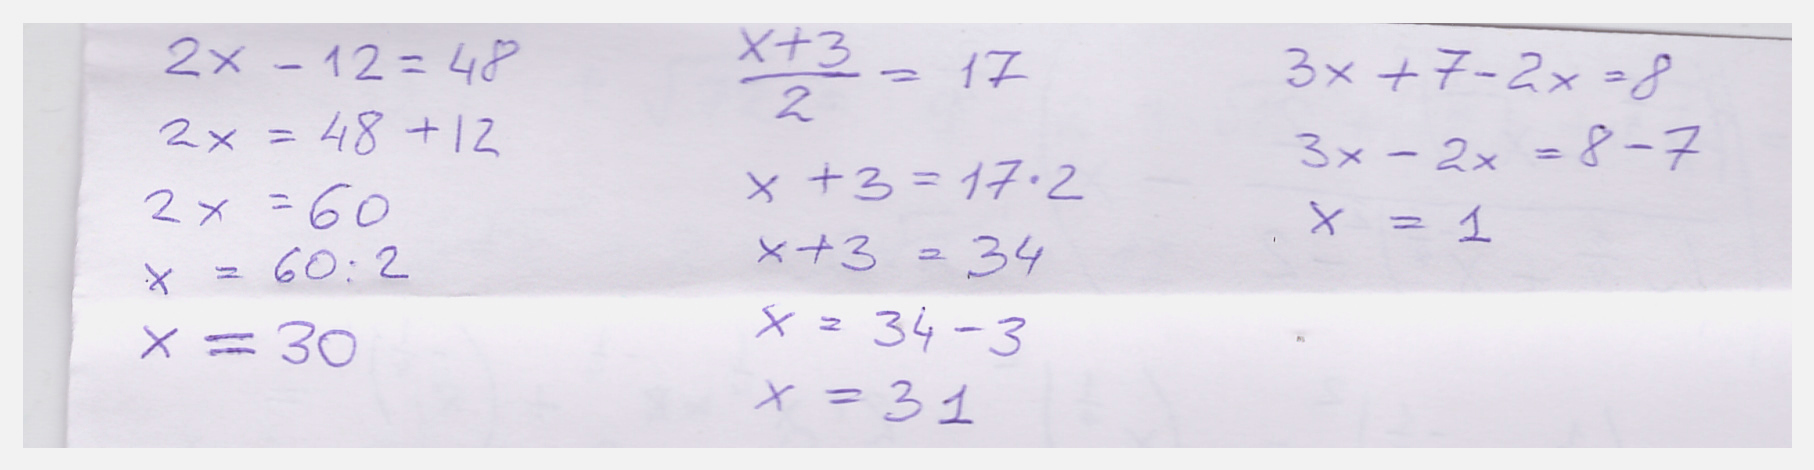 2x - 12 = 48
2x = 48 + 12
2x = 60
x = 60 : 2
x = 30
x+3
2
= 17
x + 3 = 17 · 2
x + 3 = 34
x = 34 - 3
x = 31
3x + 7 - 2x = 8
3x - 2x = 8 - 7
x = 1